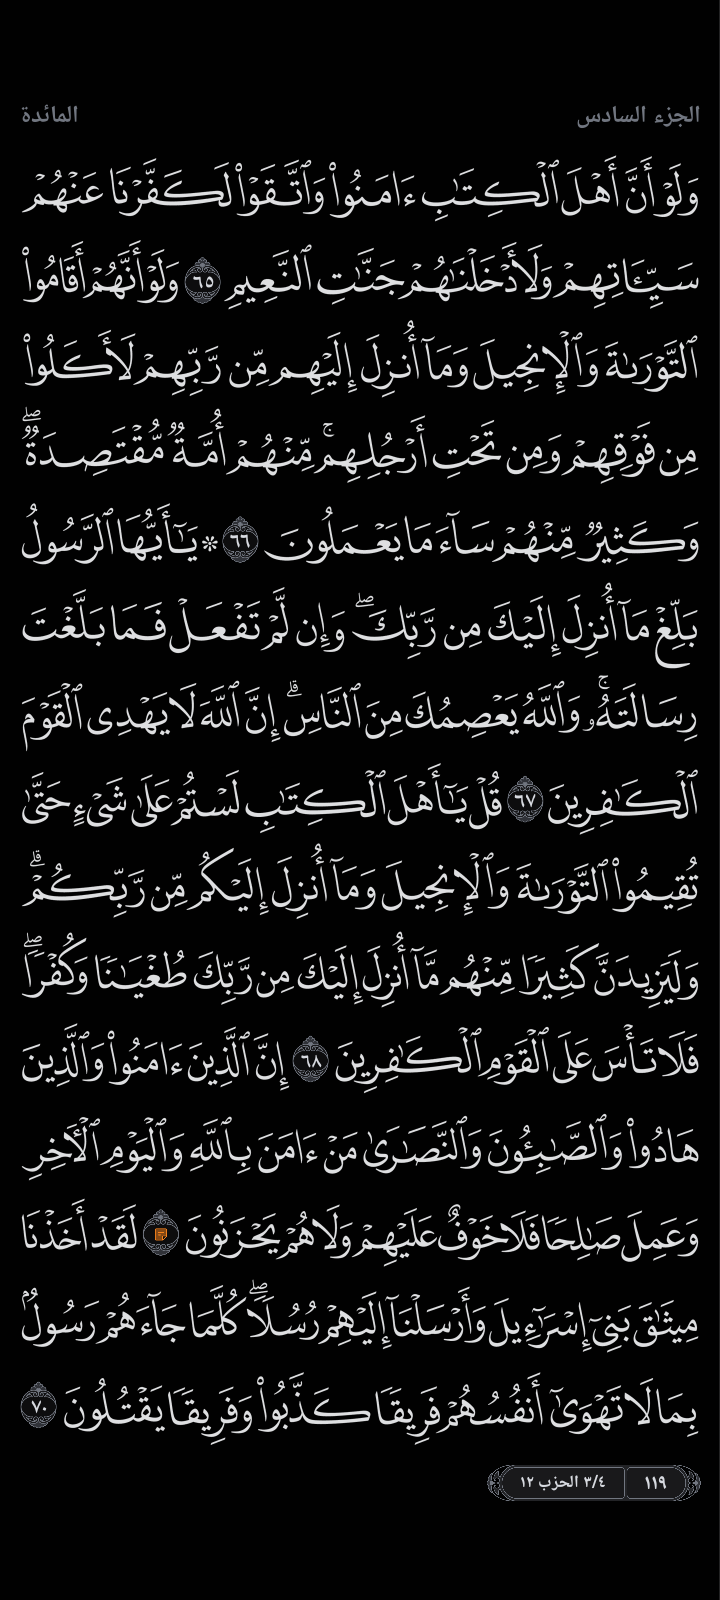 الجزء السادس المائدة
وَلَوْ أَنَّ أَهْلَ ٱلْكِتَـٰبِ ءَامَنُوا۟ وَٱتَّقَوْا۟ لَكَفَّرْنَا عَنْهُمْ
سَيِّـَٔاتِهِمْ وَلَأَدْخَلْنَـٰهُمْ جَنَّـٰتِ ٱلنَّعِيمِ ٦٥ وَلَوْ أَنَّهُمْ أَقَامُوا۟
ٱلتَّوْرَىٰةَ وَٱلْإِنجِيلَ وَمَآ أُنزِلَ إِلَيْهِم مِّن رَّبِّهِمْ لَأَكَلُوا۟
مِن فَوْقِهِمْ وَمِن تَحْتِ أَرْجُلِهِم ۚ مِّنْهُمْ أُمَّةٌ مُّقْتَصِدَةٌ ۖ
وَكَثِيرٌ مِّنْهُمْ سَآءَ مَا يَعْمَلُونَ ٦٦ ۞ يَـٰٓأَيُّهَا ٱلرَّسُولُ
بَلِّغْ مَآ أُنزِلَ إِلَيْكَ مِن رَّبِّكَ ۖ وَإِن لَّمْ تَفْعَلْ فَمَا بَلَّغْتَ
رِسَالَتَهُۥ ۚ وَٱللَّهُ يَعْصِمُكَ مِنَ ٱلنَّاسِ ۗ إِنَّ ٱللَّهَ لَا يَهْدِى ٱلْقَوْمَ
ٱلْكَـٰفِرِينَ ٦٧ قُلْ يَـٰٓأَهْلَ ٱلْكِتَـٰبِ لَسْتُمْ عَلَىٰ شَىْءٍ حَتَّىٰ
تُقِيمُوا۟ ٱلتَّوْرَىٰةَ وَٱلْإِنجِيلَ وَمَآ أُنزِلَ إِلَيْكُم مِّن رَّبِّكُمْ ۗ
وَلَيَزِيدَنَّ كَثِيرًا مِّنْهُم مَّآ أُنزِلَ إِلَيْكَ مِن رَّبِّكَ طُغْيَـٰنًا وَكُفْرًا ۖ
فَلَا تَأْسَ عَلَى ٱلْقَوْمِ ٱلْكَـٰفِرِينَ ٦٨ إِنَّ ٱلَّذِينَ ءَامَنُوا۟ وَٱلَّذِينَ
هَادُوا۟ وَٱلصَّـٰبِـُٔونَ وَٱلنَّصَـٰرَىٰ مَنْ ءَامَنَ بِٱللَّهِ وَٱلْيَوْمِ ٱلْـَٔاخِرِ
وَعَمِلَ صَـٰلِحًا فَلَا خَوْفٌ عَلَيْهِمْ وَلَا هُمْ يَحْزَنُونَ لَقَدْ أَخَذْنَا
مِيثَـٰقَ بَنِىٓ إِسْرَٰٓءِيلَ وَأَرْسَلْنَآ إِلَيْهِمْ رُسُلًا ۖ كُلَّمَا جَآءَهُمْ رَسُولٌۢ
بِمَا لَا تَهْوَىٰٓ أَنفُسُهُمْ فَرِيقًا كَذَّبُوا۟ وَفَرِيقًا يَقْتُلُونَ ٧٠
١١٩ ٣/٤ الحزب ١٢